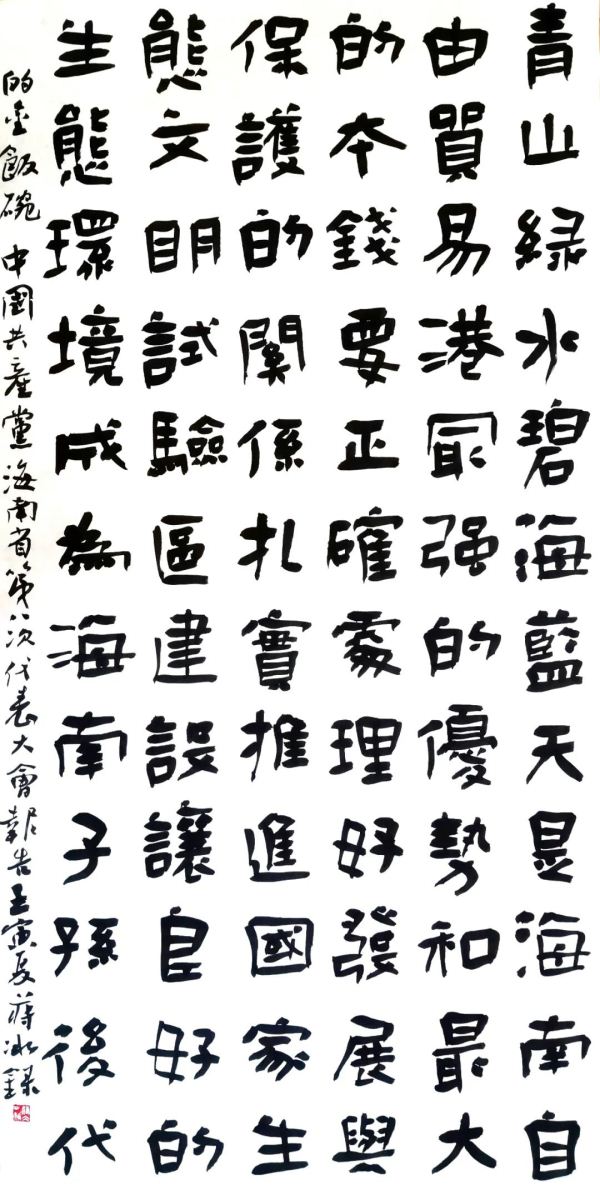 青山緑水碧海藍天是海南自
由貿易港最强的優勢和最大
的本錢要正確處理好發展與
保護的關係扎實推進國家生
態文明試驗區建設讓良好的
生態環境成為海南子孫後代
的金飯碗 中國共產黨海南省第八次代表大會報告壬寅夏蔣冰録